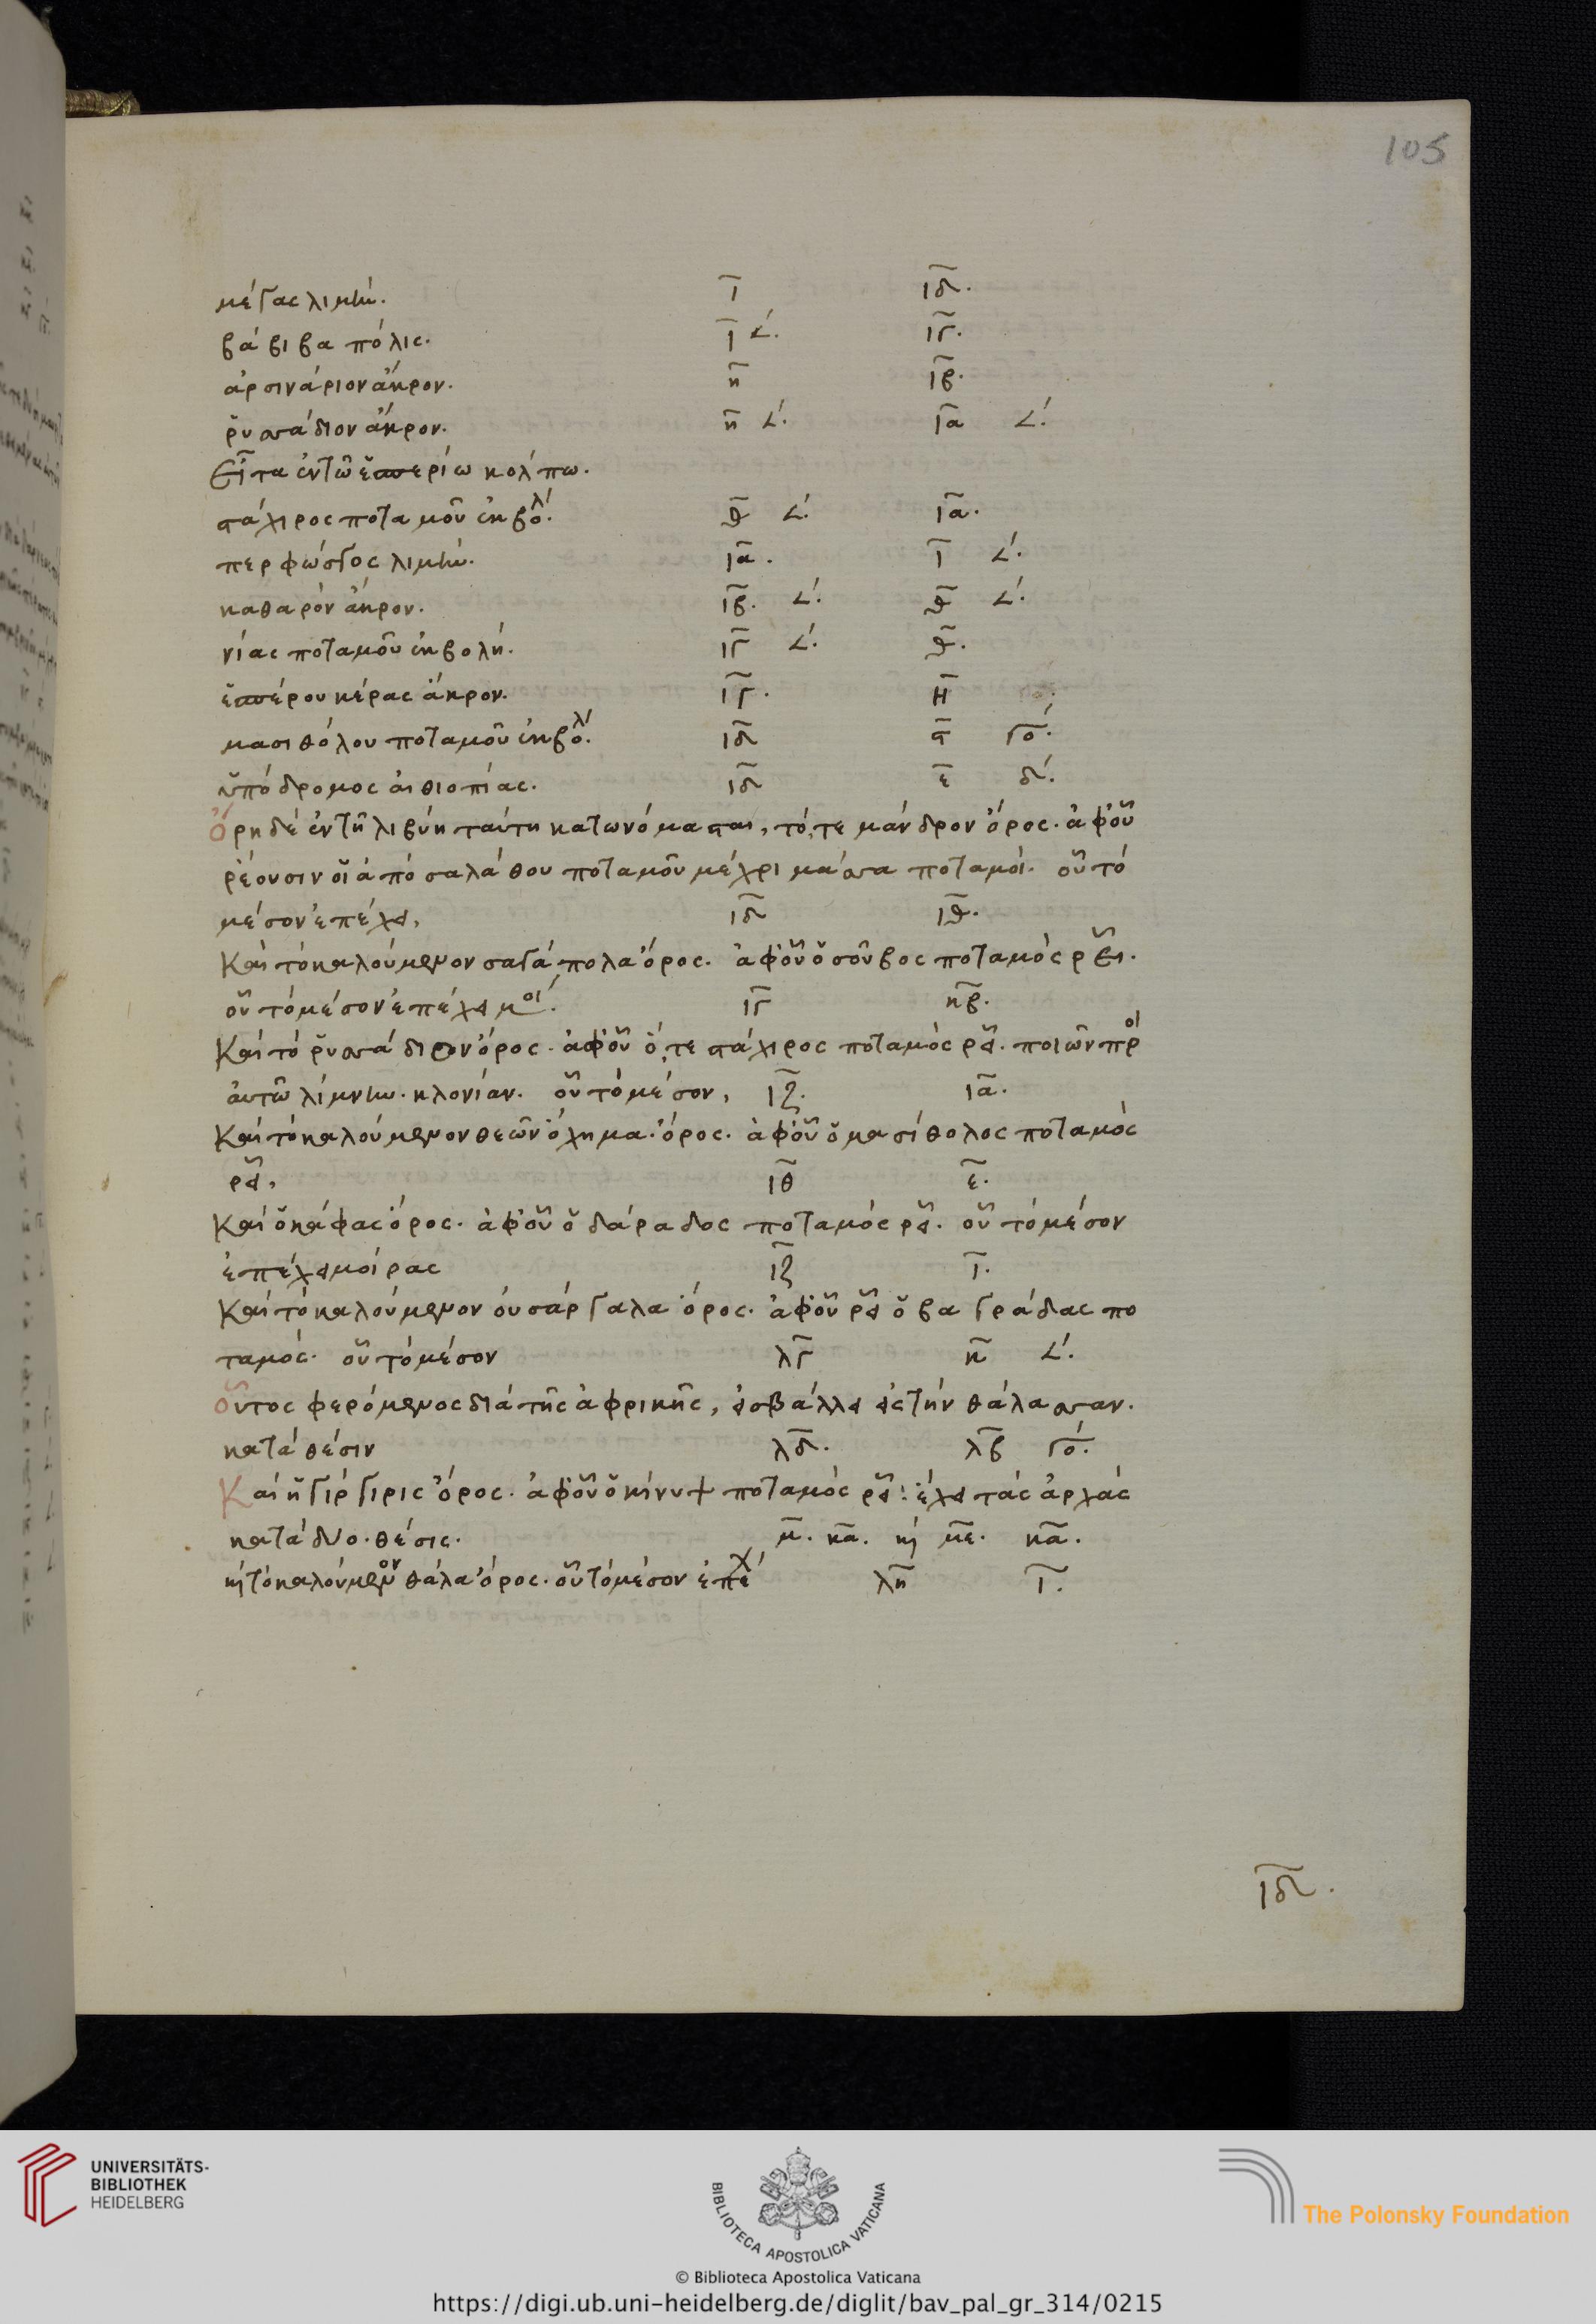 105
μέγας λιμήν. ῑ ιδ̅.
βάβιβα πόλις. ῑ 𐅵. ιγ̅.
ἀρσινάριον ἄκρον. η̅ ιβ̅.
ῥυσσάδιον ἄκρον. η̅ 𐅵. ια̅ 𐅵.
Εἶτα ἐν τῶ ἑσπερίω κολπω.
στάχιρος ποταμοῦ ἐκβολ. θ̅ 𐅵. ια̅.
περφώσγος λιμήν. ια̅. ῑ 𐅵.
καθαρὸν ἄκρον. ιβ̅. 𐅵. θ̅ 𐅵.
νίας ποταμοῦ ἐκβολή. ιγ̅ 𐅵. θ̅.
ἑσπέρου κέρας ἄκρον. ιγ̅. η̅
μασιθόλου ποταμοῦ ἐκβολ. ιδ̅ ϛ̅ γο.
ὑπόδρομος αἰθιοπίας. ιδ̅ ε̅ δ.
Ὄρη δὲ ἐν τῆ λιβύη ταύτη κατωνόμασται, τό, τε μάνδρον ὄρος. ἀφ οὗ
ῥέουσιν οἱ ἀπὸ σαλάθου ποταμοῦ μέχρι μάσσα ποταμοί. οὗ τὸ
μέσον ἐπέχει, ιδ̅ ιθ̅.
Καὶ τὸ καλούμενον σαγάπολα ὄρος. ἀφ οὗ ὁ σοῦβος ποταμὸς ῥεῖ.
οὗ τὸ μέσον ἐπέχει μοι. ιγ̅ κβ̅.
Καὶ τὸ ῥυσσάδιον ὄρος. ἀφ οὗ ὅ, τε στάχιρος ποταμὸς ῥεῖ. ποιῶν πρ οι
αὐτῶ λίμνην. κλονίαν. οὗ τὸ μέσον, ιζ̅. ια̅.
Καὶ τὸ καλούμενον θεῶν ὄχημα. ὄρος. ἀφ οὗ ὁ μασίθολος ποταμὸς
ῥεῖ, ιθ̅ ε̅.
Καὶ ὁ κάφας ὄρος. ἀφ οὗ ὁ δάραδος ποταμὸς ῥεῖ. οὗ τὸ μέσον
ἐπέχει μοίρας ιζ̅ ῑ.
Καὶ τὸ καλούμενον ουσάργαλα ὄρος. ἀφ οὗ ῥεῖ ὁ βαγράδας πο
ταμός. οὗ τὸ μέσον λγ̅ κ̅ 𐅵.
Οὗτος φερόμενος διὰ τῆς ἀφρικῆς, εἰσβάλλει εἰς τὴν θάλασσαν.
κατὰ θέσιν λδ̅. λβ̅ γο.
Καὶ ἡ γίργιρις ὄρος. ἀφ οὗ ὁ κίνυψ ποταμὸς ῥεῖ. ἔχει τὰς ἀρχὰς
κατὰ δύο. θέσις. μ̅. κα̅. καὶ με̅. κα̅.
καὶ τὸ καλούμενον θάλα ὄρος. οὗ τὸ μέσον ἐπέχ λη̅ ῑ.
ιδ̅.
UNIVERSITÄTS-
BIBLIOTHEK
HEIDELBERG
BIBLIOTECA APOSTOLICA VATICANA
The Polonsky Foundation
© Biblioteca Apostolica Vaticana
https://digi.ub.uni-heidelberg.de/diglit/bav_pal_gr_314/0215